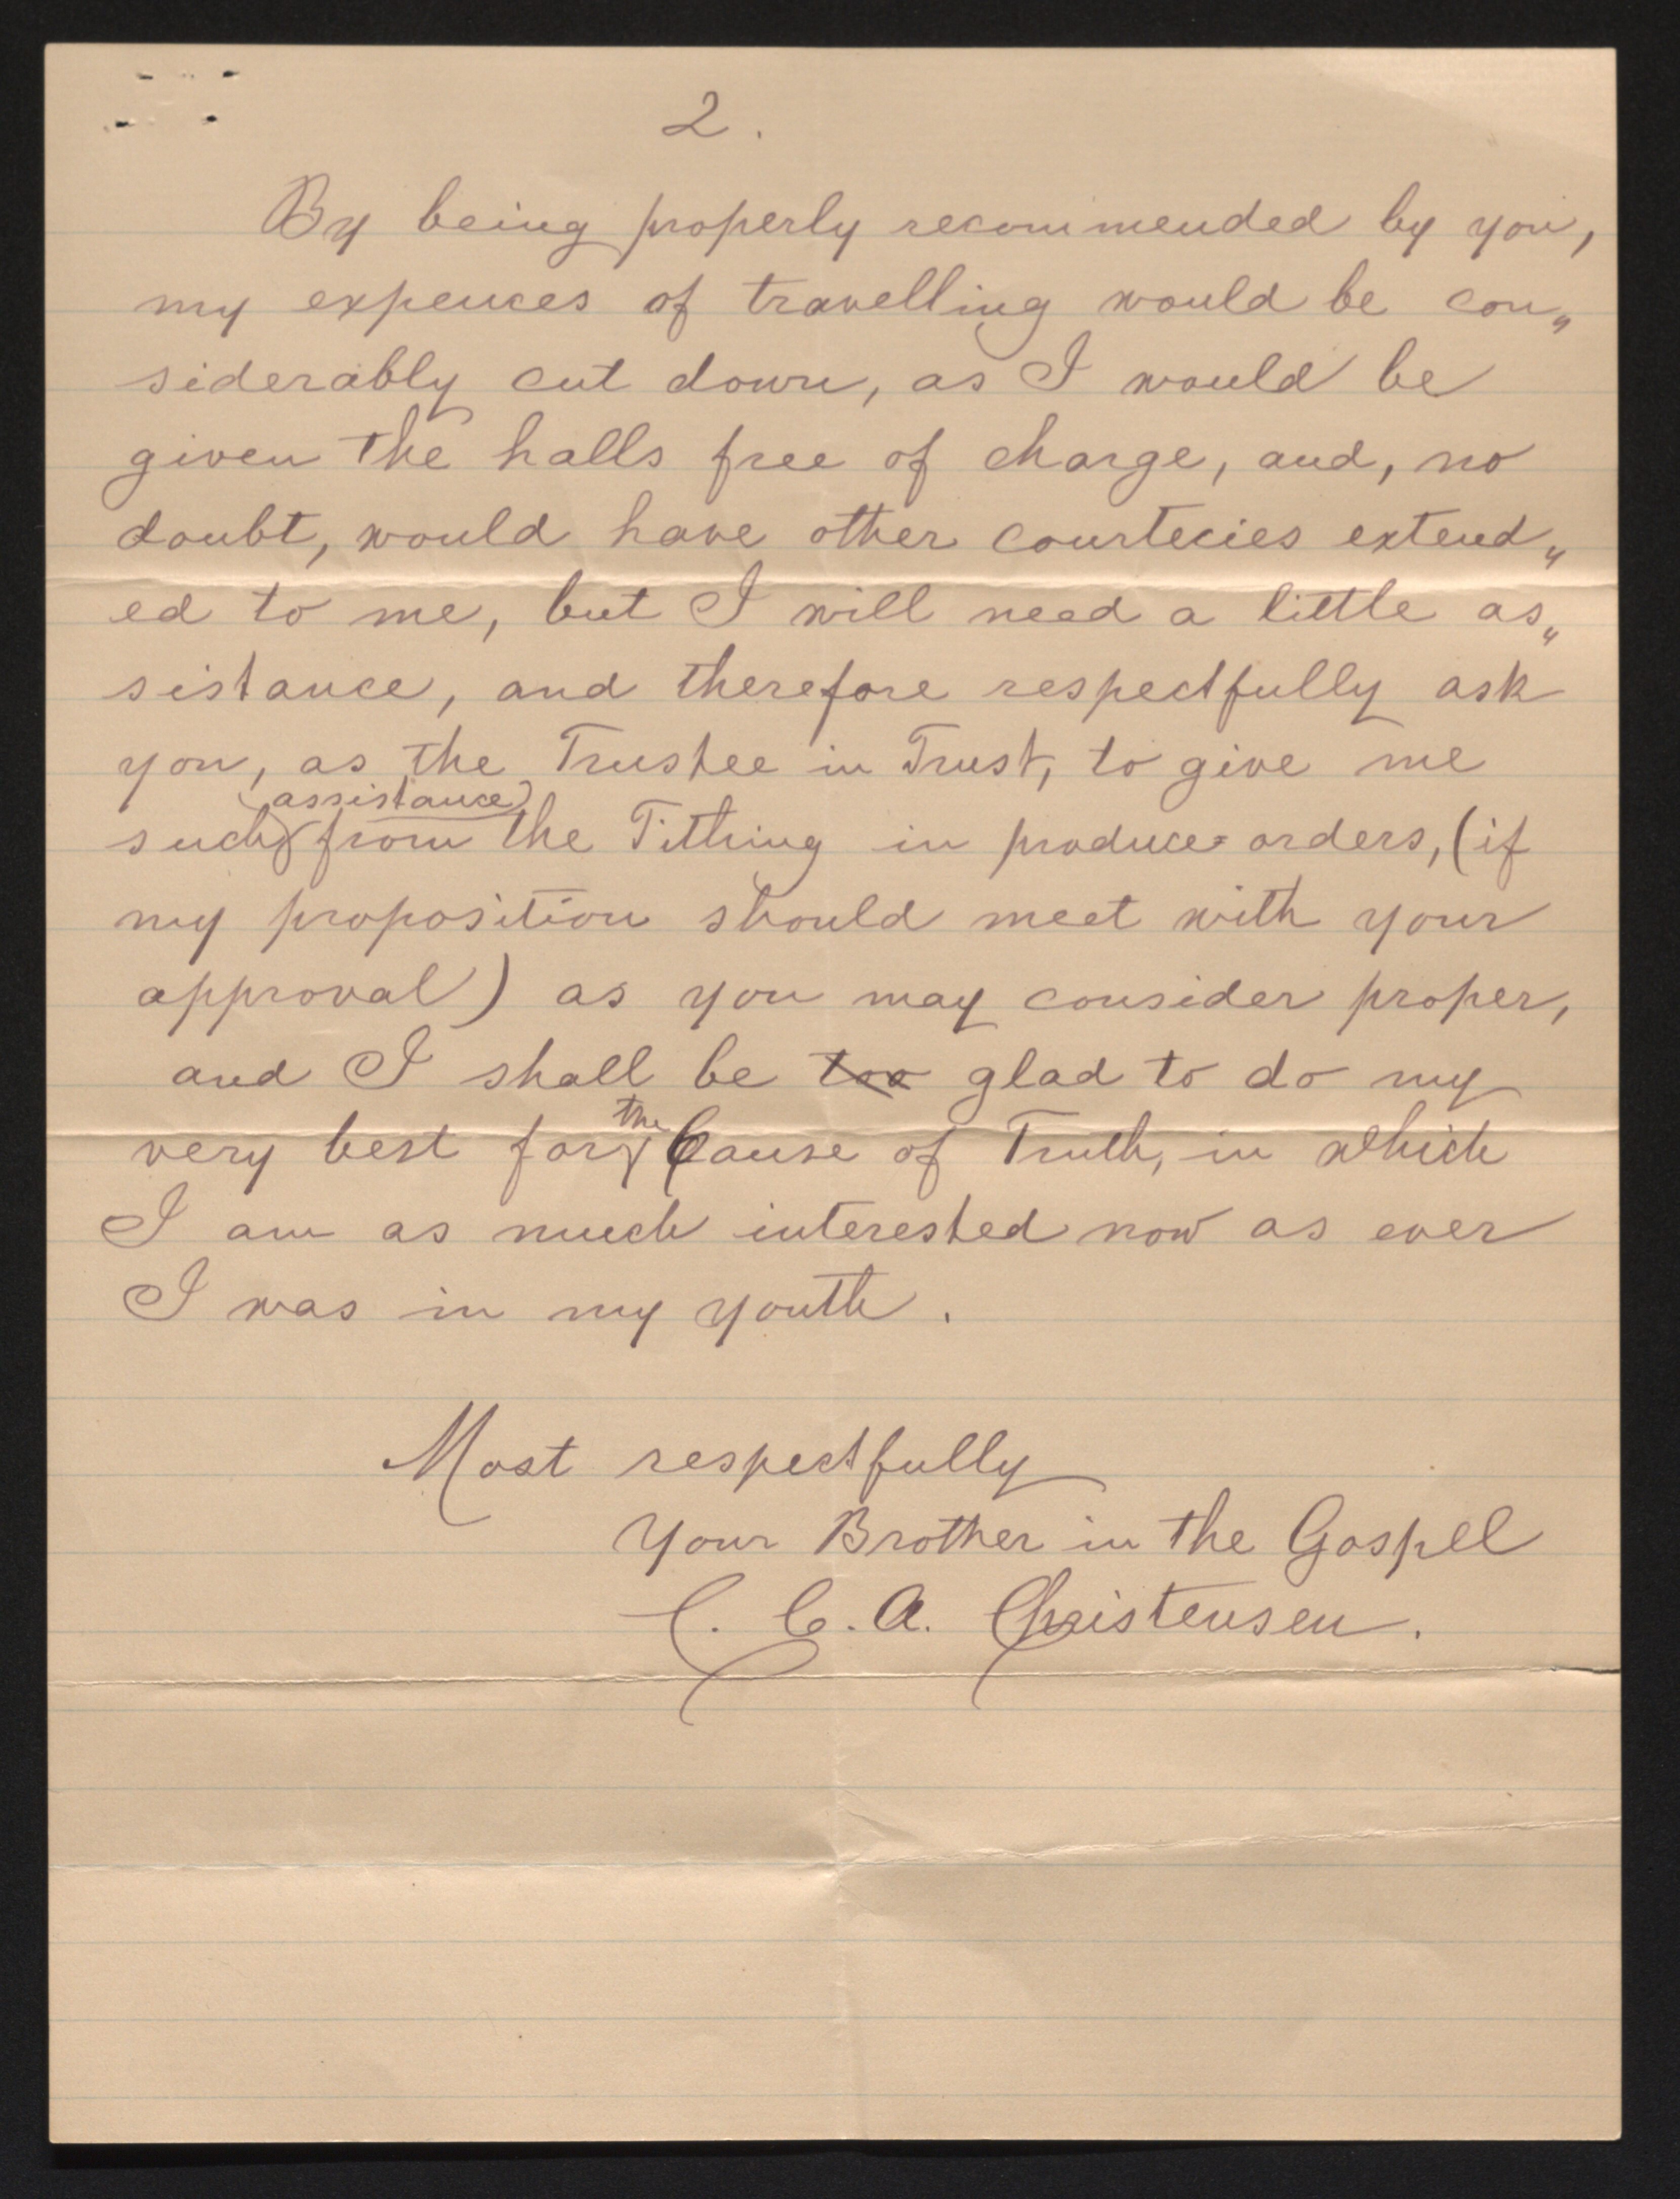 2.
By being properly recommended by you,
my expences of travelling would be con„
siderably cut down, as I would be
given the halls free of charge, and, no
doubt, would have other courtecies extend„
ed to me, but I will need a little as„
sistance, and therefore respectfully ask
you, as the Trustee in Trust, to give me
(assistance)
such from the Tithing in produce orders, (if
my proposition should meet with your
approval) as you may consider proper,
and I shall be too glad to do my
the
very best for Cause of Truth, in which
I am as much interested now as ever
I was in my youth.
Most respectfully
Your Brother in the Gospel
C. C. A. Christensen.